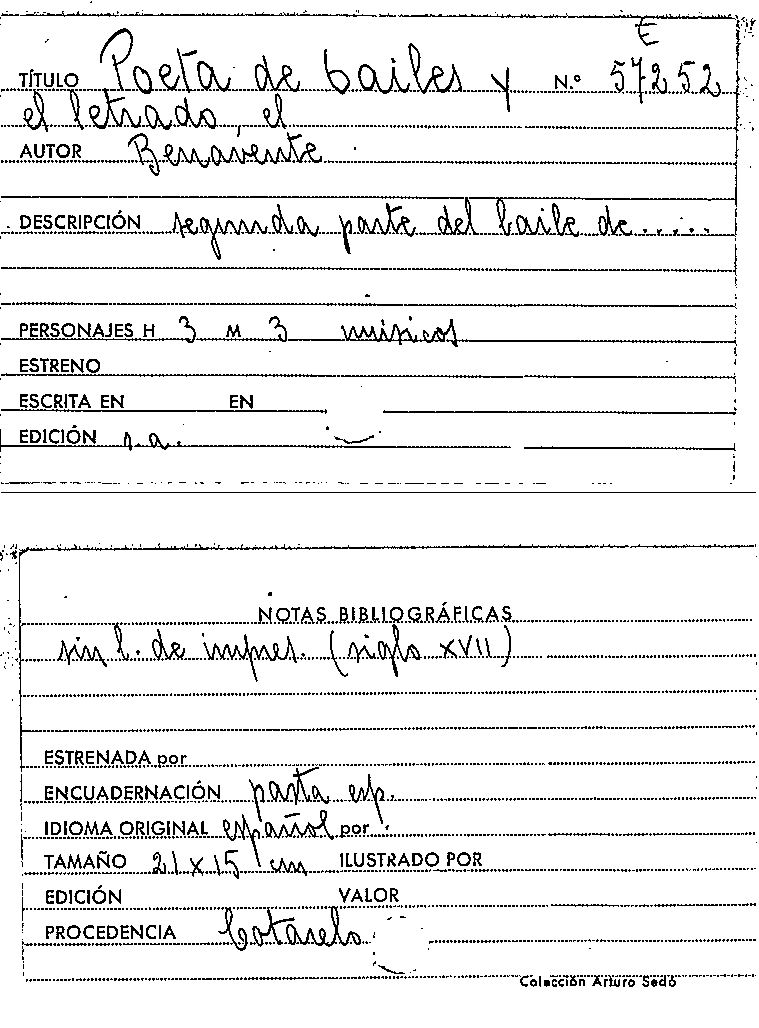 E
TÍTULO Poeta de bailes y N.º 57252
el letrado, el
AUTOR Benavente
DESCRIPCIÓN segunda parte del baile de.....
PERSONAJES H 3 M 3 músicos
ESTRENO
ESCRITA EN EN
EDICIÓN s.a.
NOTAS BIBLIOGRÁFICAS
sin l. de impres. (siglo XVII)
ESTRENADA por
ENCUADERNACIÓN pasta esp.
IDIOMA ORIGINAL español por
TAMAÑO 21 x 15 cm ILUSTRADO POR
EDICIÓN VALOR
PROCEDENCIA Cotarelo
Colección Arturo Sedó